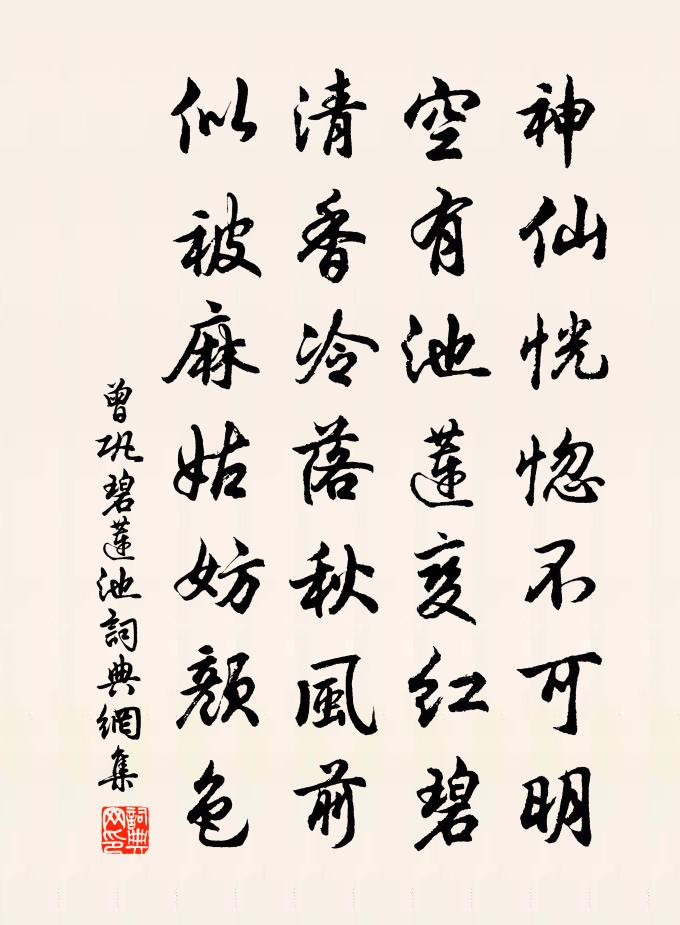 神仙恍惚不可明
空有池蓮变红碧
清香冷落秋風前
似被麻姑妨颜色
曾巩碧蓮池詞典網集
詞典网印